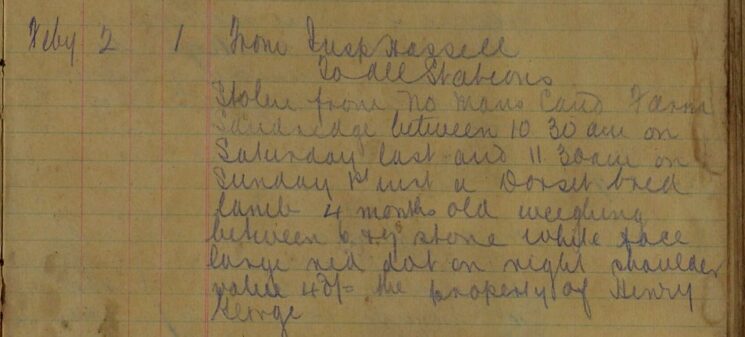 Feby 2 1 From Supt Hassell
To All Stations
Stolen from No Mans Land Farm
Sandridge between 10 30 am on
Saturday last and 11 30am on
Sunday 1st inst a Dorset bred
lamb 4 months old weighing
between 6 & 7 stone white face
large red dot on right shoulder
value the property of Henry
George